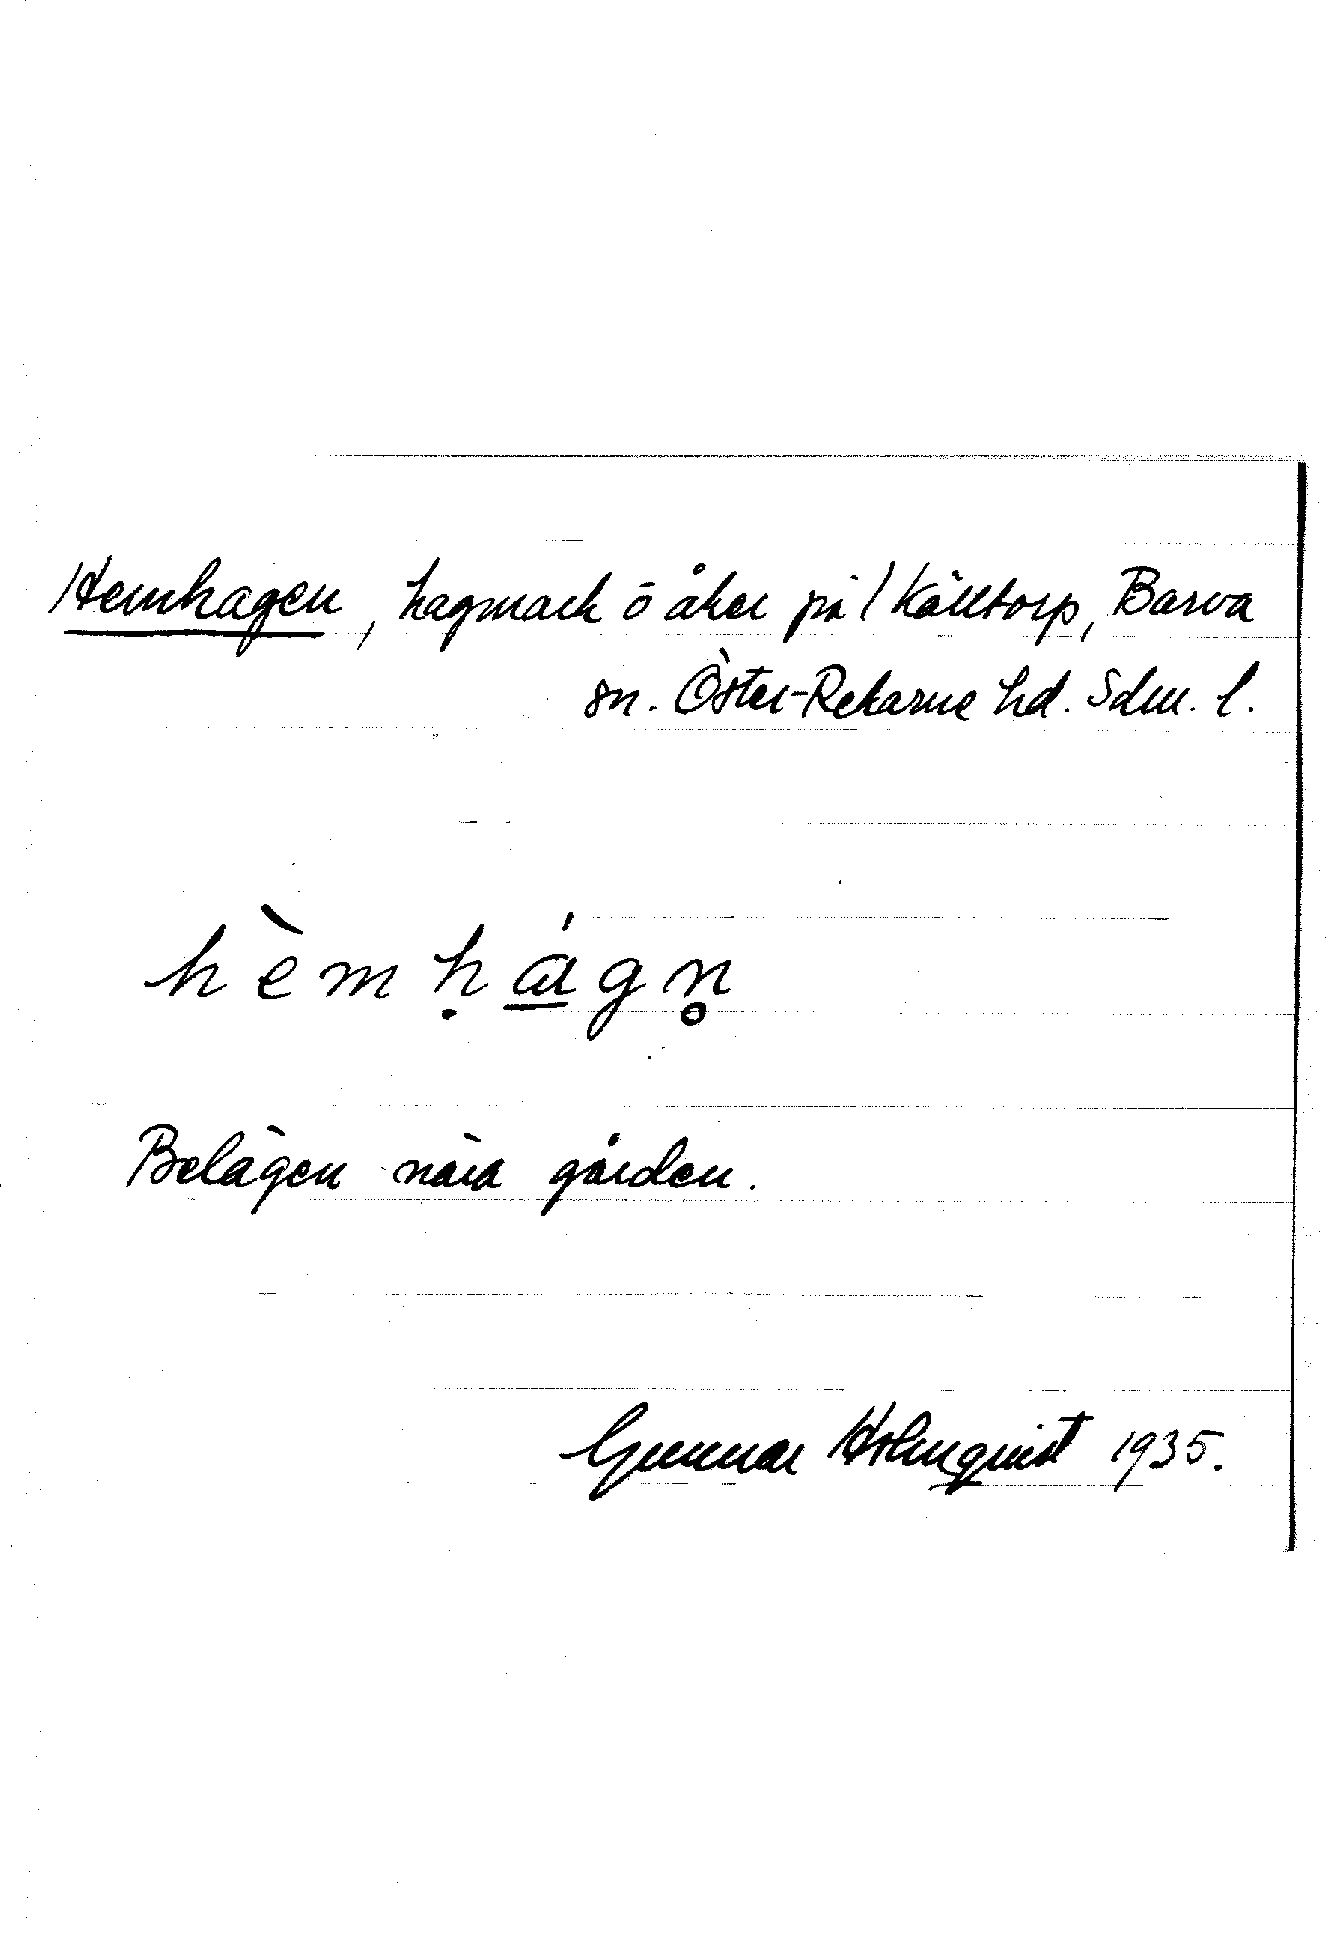 Hemhagen, hagmark o åker på Källtorp, Barva
sn. Öster-Rekarne hd. Sdm. l.
hèmḥágn̥
Belägen nära gården.
Gunnar Holmquist 1935.